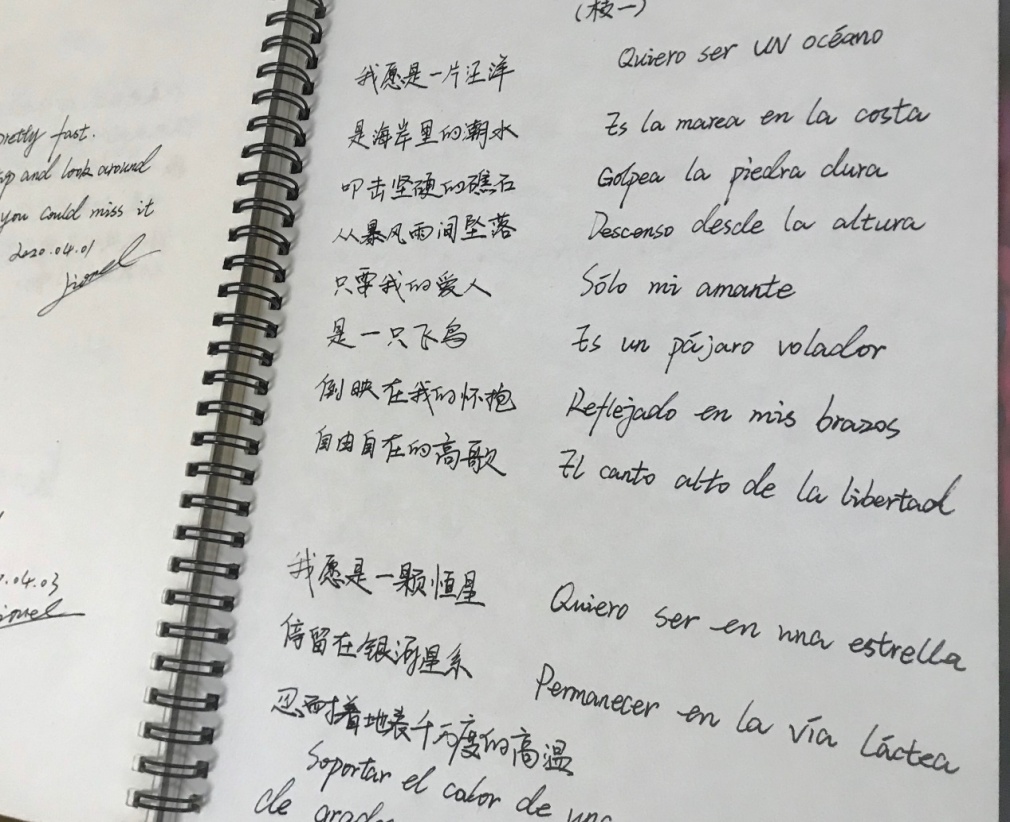 pretty fast.
up and look around
you could miss it
2020.04.01
Lionel
.04.03
(枝一)
我愿是一片汪洋
Quiero ser UN océano
是海岸里的潮水
Es la marea en la costa
叩击坚硬的礁石
Golpea la piedra dura
从暴风雨间坠落
Descenso desde la altura
只要我的爱人
Sólo mi amante
是一只飞鸟
Es un pájaro volador
倒映在我的怀抱
Reflejado en mis brazos
自由自在的高歌
El canto alto de la libertad
我愿是一颗恒星
Quiero ser en una estrella
停留在银河星系
Permanecer en la vía láctea
忍耐着地表千万度的高温
Soportar el calor de una
de